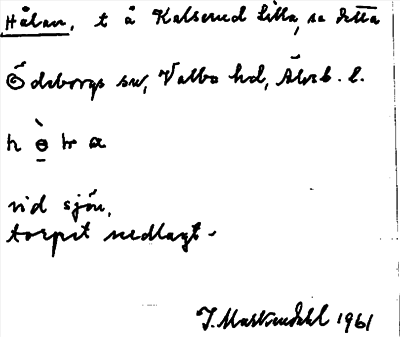 Hålan, t å Kalserud Lilla, se detta
Ödeborgs sn, Valbo hd, Älvsb. l.
vid sjön,
torpet nedlagt.
1961